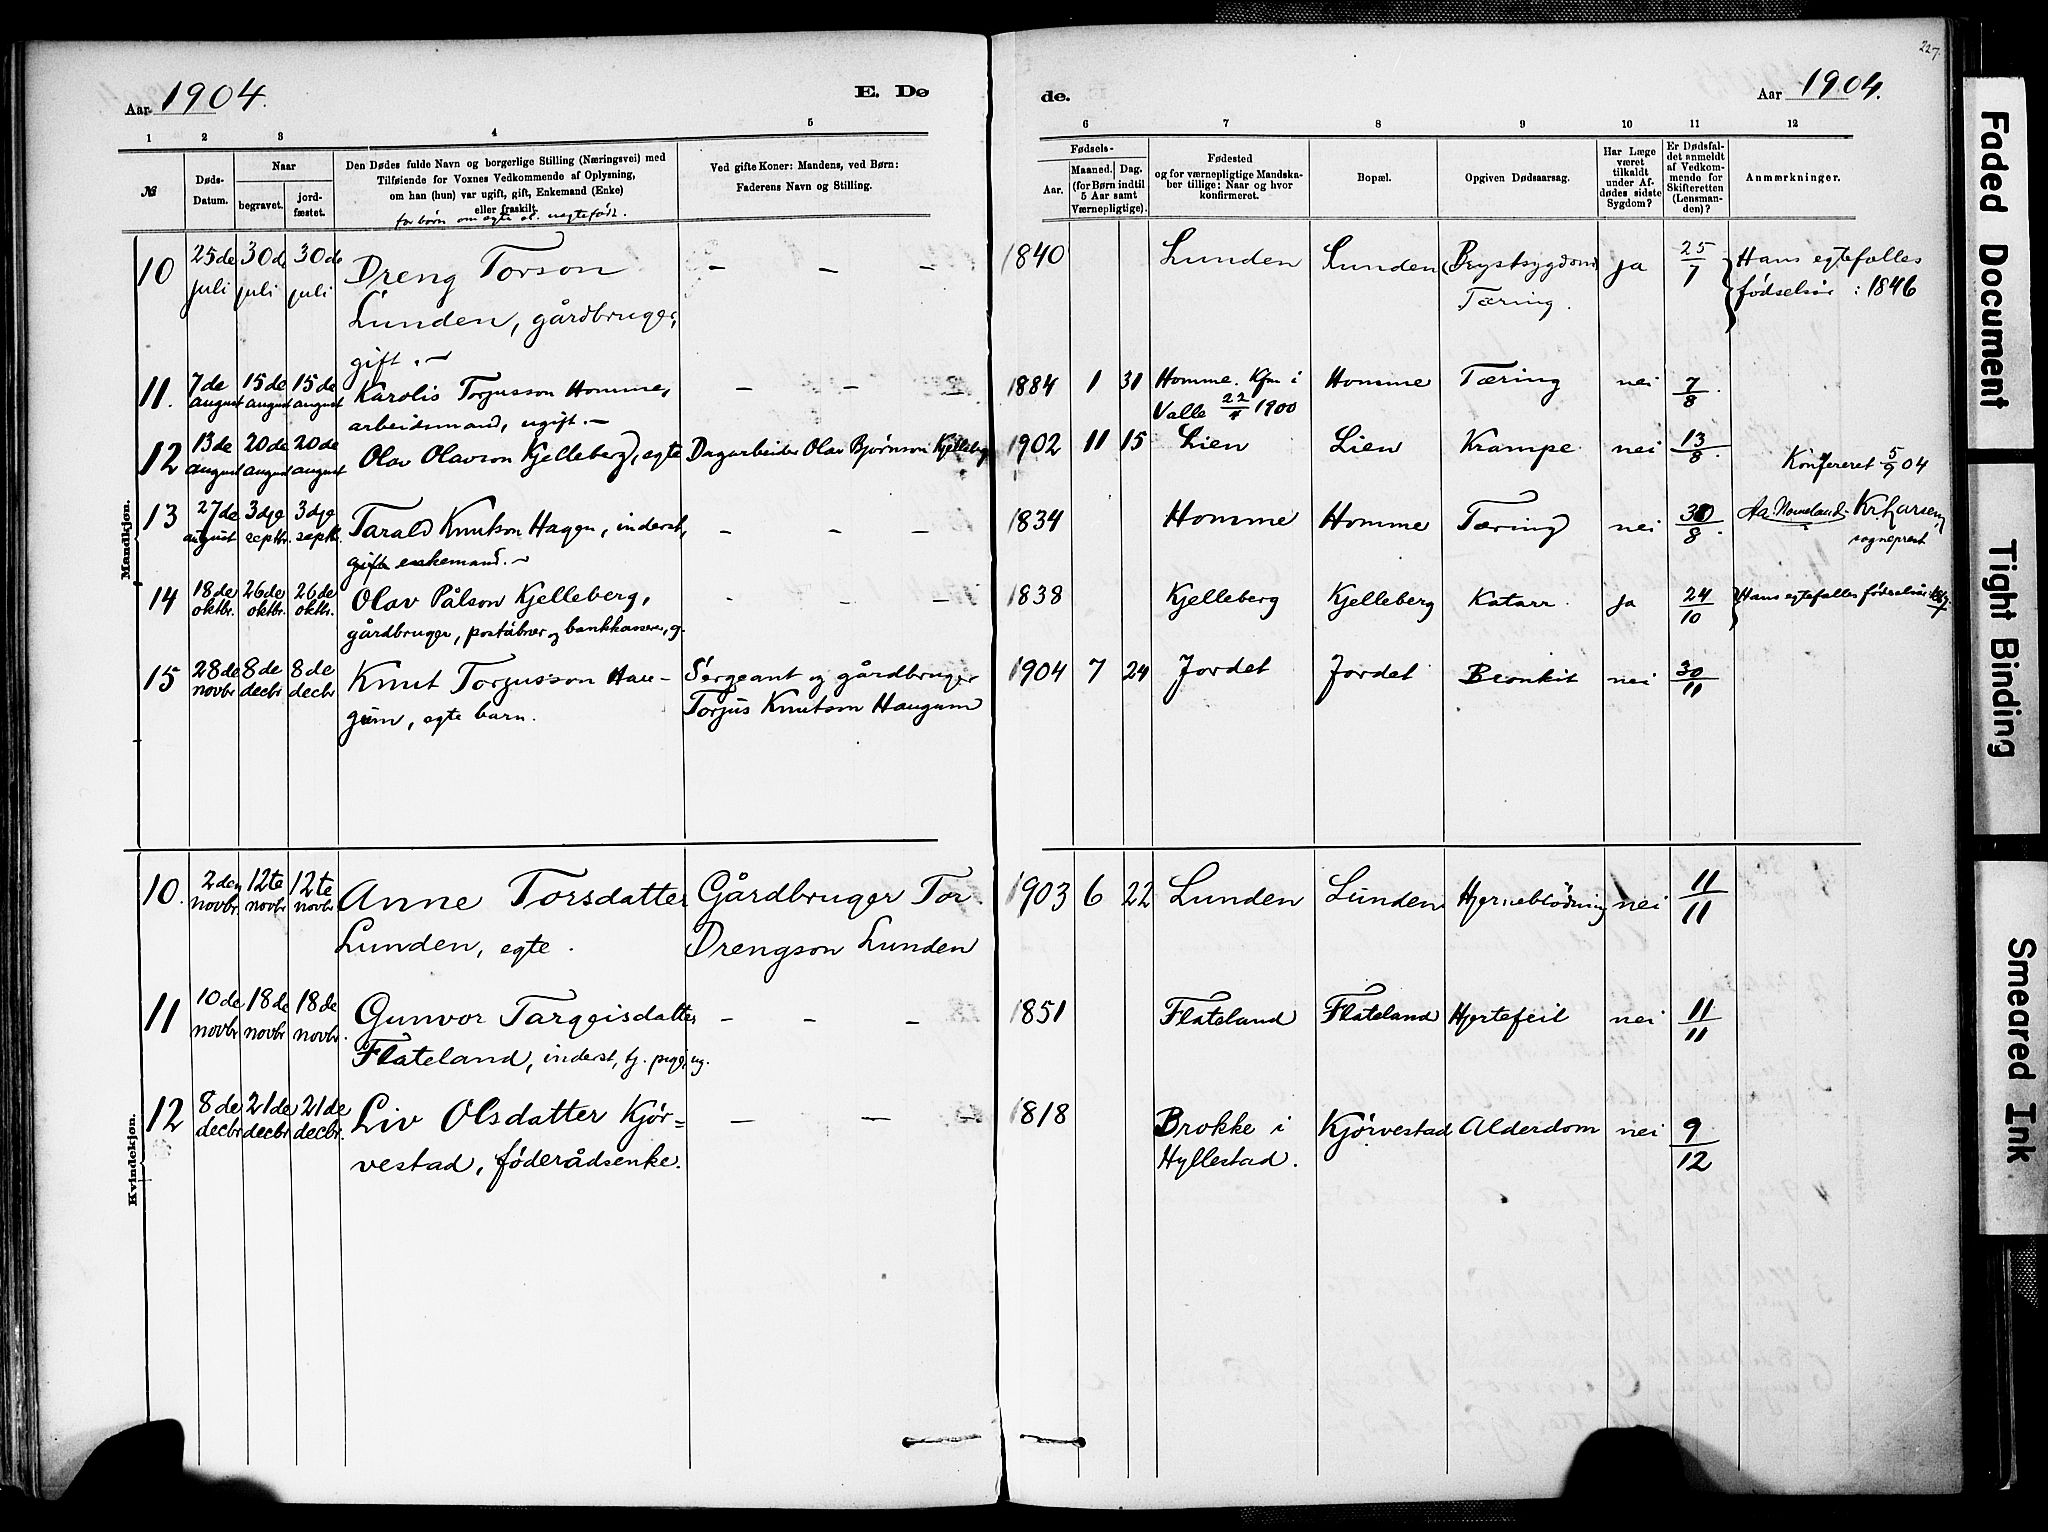 227.
Aar 1904.
E. Dø
de.
Aar 1904.
1 2 3 4 5
6 7 8 9 10 11 12
№
Døds-Datum.
Naar
begravet.
jord-fæstet.
Den Dødes fulde Navn og borgerlige Stilling (Næringsvei) med
Tilføiende for Voxnes Vedkommende af Oplysning,
om han (hun) var ugift, gift, Enkemand (Enke)
eller fraskilt.
for børn om egte el. uegtefødt.
Ved gifte Koner: Mandens, ved Børn:
Faderens Navn og Stilling.
Fødsels-
Aar.
Maaned. Dag.
(for Børn indtil
5 Aar samt
Værnepligtige).
Fødested
og for værnepligtige Mandska-
ber tillige: Naar og hvor
konfirmeret.
Bopæl.
Opgiven Dødsaarsag.
Har Læge
været
tilkaldt
under Af-
dødes sidste
Sygdom?
Er Dødsfal-
det anmeldt
af Vedkom-
mende for
Skifteretten
(Lensman-
den)?
Anmærkninger.
Mandkjøn.
10 25de juli 30de juli 30de juli Dreng Torson - - - 1840 Lunden Lunden Brystsygdom ja 25/7 Hans egtefælles
Lunden, gårdbruger, Tæring. fødselsår: 1846
gift. -
11. 7de august 15de august 15de august Karolis Torjusson Homme, - - - 1884 1 31 Homme. Kfm i Homme Tæring nei 7/8.
arbeidsmand, ugift. - Valle 22/4 1900
12 13de august 20de august 20de august Olav Olavson Kjelleberg, egte Dagarbeider Olav Bjørnson Kjelleberg 1902 11 15 Lien Lien Krampe nei 13/8.
Konfereret 5/9 04
13 27de august 3dje septbr. 3dje septb. Tarald Knutson Hagen, inderst, - - - 1834 Homme Homme Tæring nei 30/8. Aa. Nomeland - Kr. Larsen
gift enkemand. - sogneprest
14 18de oktbr. 26de oktbr. 26de oktbr. Olav Pålson Kjelleberg, - - - 1838 Kjelleberg Kjelleberg Katarr. ja 24/10 Hans egtefælles fødselsår
gårdbruger, poståbner og bankkasserer, g.
15 28de novbr 8de decbr 8de decbr Knut Torjusson Hau- Sergeant og gårdbruger 1904 7 24 Jordet Jordet Bronkit nei 30/11
gum, egte barn. Torjus Knutson Haugum
Kvindekjøn.
10. 2den novbr 12te novbr 12te novbr Anne Torsdatter Gårdbruger Tor 1903 6 22 Lunden Lunden Hjerneblødning nei 11/11
Lunden, egte. Drengson Lunden
11 10de novbr 18de novbr 18de novbr. Gunvor Targeisdatter - - - 1851 Flateland Flateland Hjertefeil nei 11/11
Flateland, inderst, tj. pige, ug.
12 8de decbr 21de decbr 21de decbr. Liv Olsdatter Kjør= - - - 1818 Brokke i Kjørvestad Alderdom nei 9/12
vestad, føderådsenke. Hyllestad.
Faded Document
Tight Binding
Smeared Ink